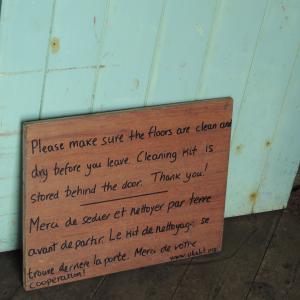 Please make sure the floors are clean and
dry before you leave. Cleaning kit is
stored behind the door. Thank you!
Merci de sedier et nettoyer par terre
avant de partir. Le kit de nettoyage se
trouve derriere la porte. Merci de votre
cooperation!